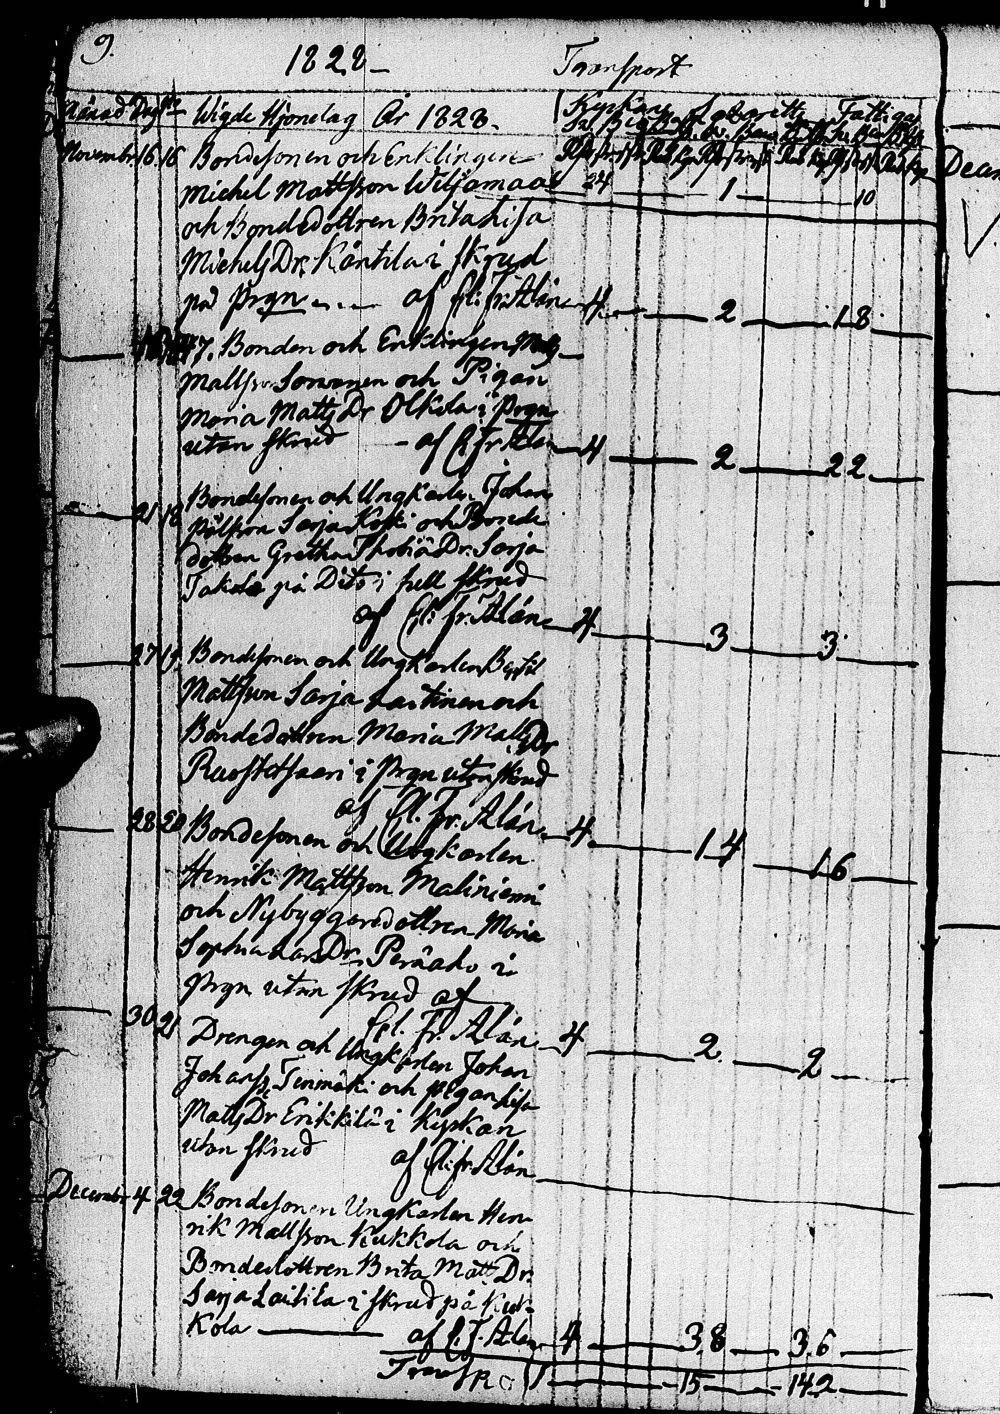 9.
1828 Transport
Månad Dag No Wigde Hjonelag År 1828. Kyrkan Lazarett Fattige
November 16 16 Bondesonen och Enklingen
Michel Mattsson Wiljamaa 24 1 10
och Bondedottren Brita Lisa
Michels Dr. Käntila i skrud
på Prgn af El: Fr: Alán 4 2 18
17. Bonden och Enklingen Matts
Mattsson Sorvanen och Pigan
Maria Matts Dr Olkola i Prgn
utan skrud af El. Fr. Alan 4 2 22
21 18 Bondesonen och Ungkarlen Johan
Pålsson Sarja Koski och Bonde
dottren Gretha Thobiä Dr. Sarja
Jakola på Dito i hell skrud
af El: fr: Alán 4 3 3
27 19 Bondesonen och Ungkarlen Bertil
Mattsson Sarja Lastinen och
Bondedottren Maria Matts Dr
i Prgn utan skrud
af El. Fr. Alán 4 14 16
28 20 Bondesonen och Ungkarlen
Henrik Mattsson Maliniemi
och Nybyggaredottren Maria
Sophia Lars Dr Peräaho i
Prgn utan skrud af
El. Fr. Alán 4 2 2
30 21 Drengen och Ungkarlen Johan
Johanss. och pigan Lisa
Matts Dr Erikkilä i Kyrkan
utan skrud af El: fr: Alán
December 4 22 Bondesonen Ungkarlen Hen
rik Mattsson Kukkola och
Bondedottren Brita Matts Dr.
Sarja Laitila i skrud på Kuk
kola af El. F. Alan 4 38 36
Transport 15 142
Decem